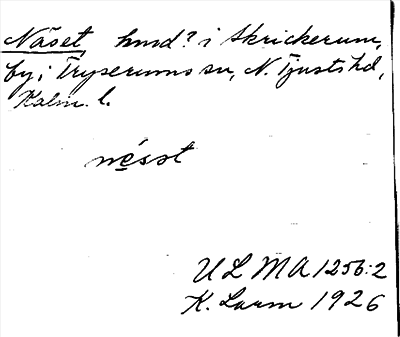 Näset, hmd? i Skrickerum,
by i Tryserums sn, N. Tjusts hd,
Kalm. l.
nésot
ULMA 1256:2
K. Larm 1926